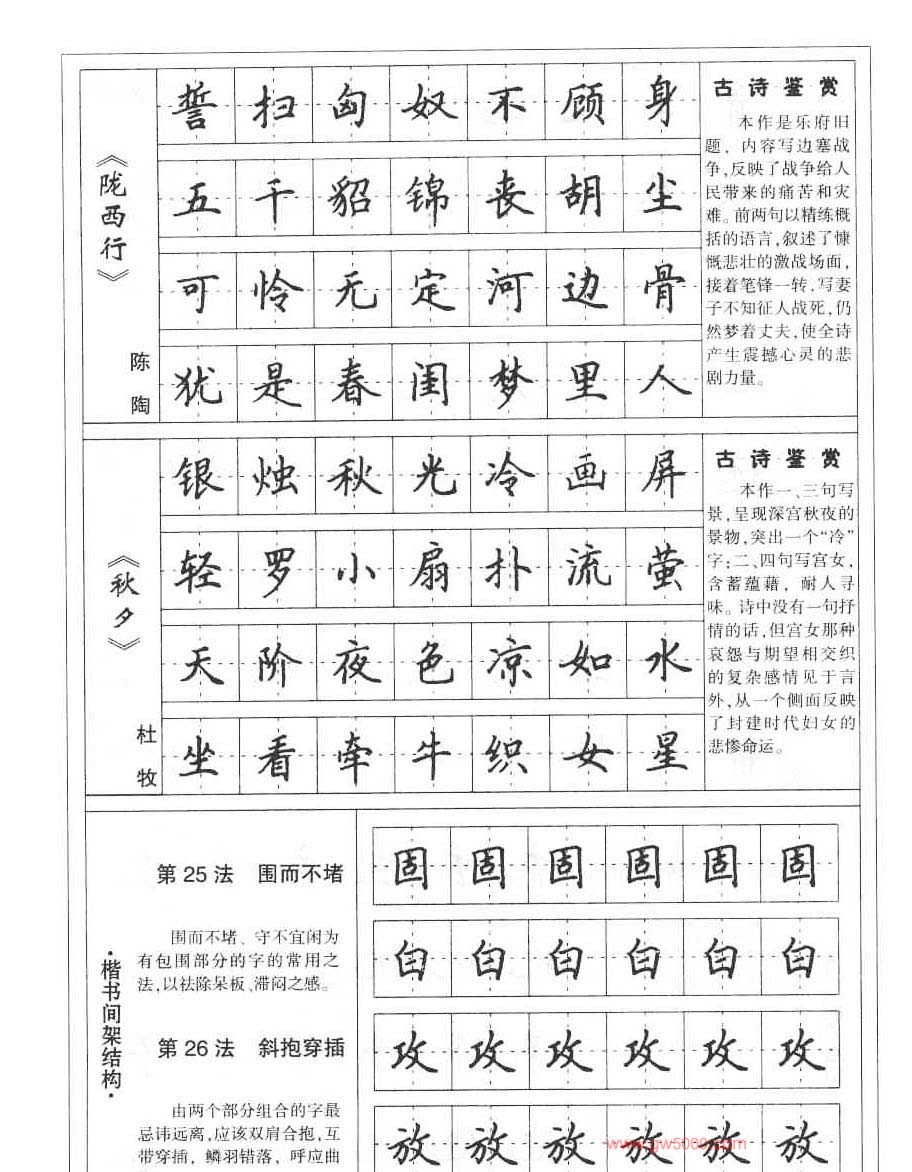 《陇西行》
陈陶
誓扫匈奴不顾身
五千貂锦丧胡尘
可怜无定河边骨
犹是春闺梦里人
古诗鉴赏
本作是乐府旧
题，内容写边塞战
争，反映了战争给人
民带来的痛苦和灾
难。前两句以精练概
括的语言，叙述了慷
慨悲壮的激战场面，
接着笔锋一转，写妻
子不知征人战死，仍
然梦着丈夫，使全诗
产生震撼心灵的悲
剧力量。
《秋夕》
杜牧
银烛秋光冷画屏
轻罗小扇扑流萤
天阶夜色凉如水
坐看牵牛织女星
古诗鉴赏
本作一、三句写
景，呈现深宫秋夜的
景物，突出一个“冷”
字；二、四句写宫女，
含蓄蕴藉，耐人寻
味。诗中没有一句抒
情的话，但宫女那种
哀怨与期望相交织
的复杂感情见于言
外，从一个侧面反映
了封建时代妇女的
悲惨命运。
·楷书间架结构·
第25法 围而不堵
围而不堵、守不宜闲为
有包围部分的字的常用之
法，以祛除呆板、滞闷之感。
第26法 斜抱穿插
由两个部分组合的字最
忌讳远离，应该双肩合抱，互
带穿插，鳞羽错落，呼应曲
固固固固固固
攻攻攻攻攻攻
放放放放放放